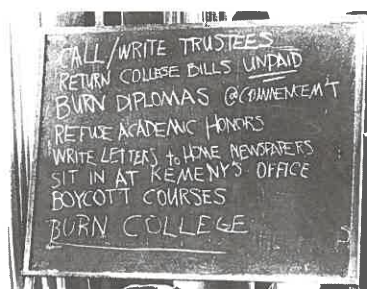 CALL/WRITE TRUSTEES
RETURN COLLEGE BILLS UNPAID
BURN DIPLOMAS @COMMENCEM'T
REFUSE ACADEMIC HONORS
WRITE LETTERS to HOME NEWSPAPERS
SIT IN AT KEMENY'S OFFICE
BOYCOTT COURSES
BURN COLLEGE